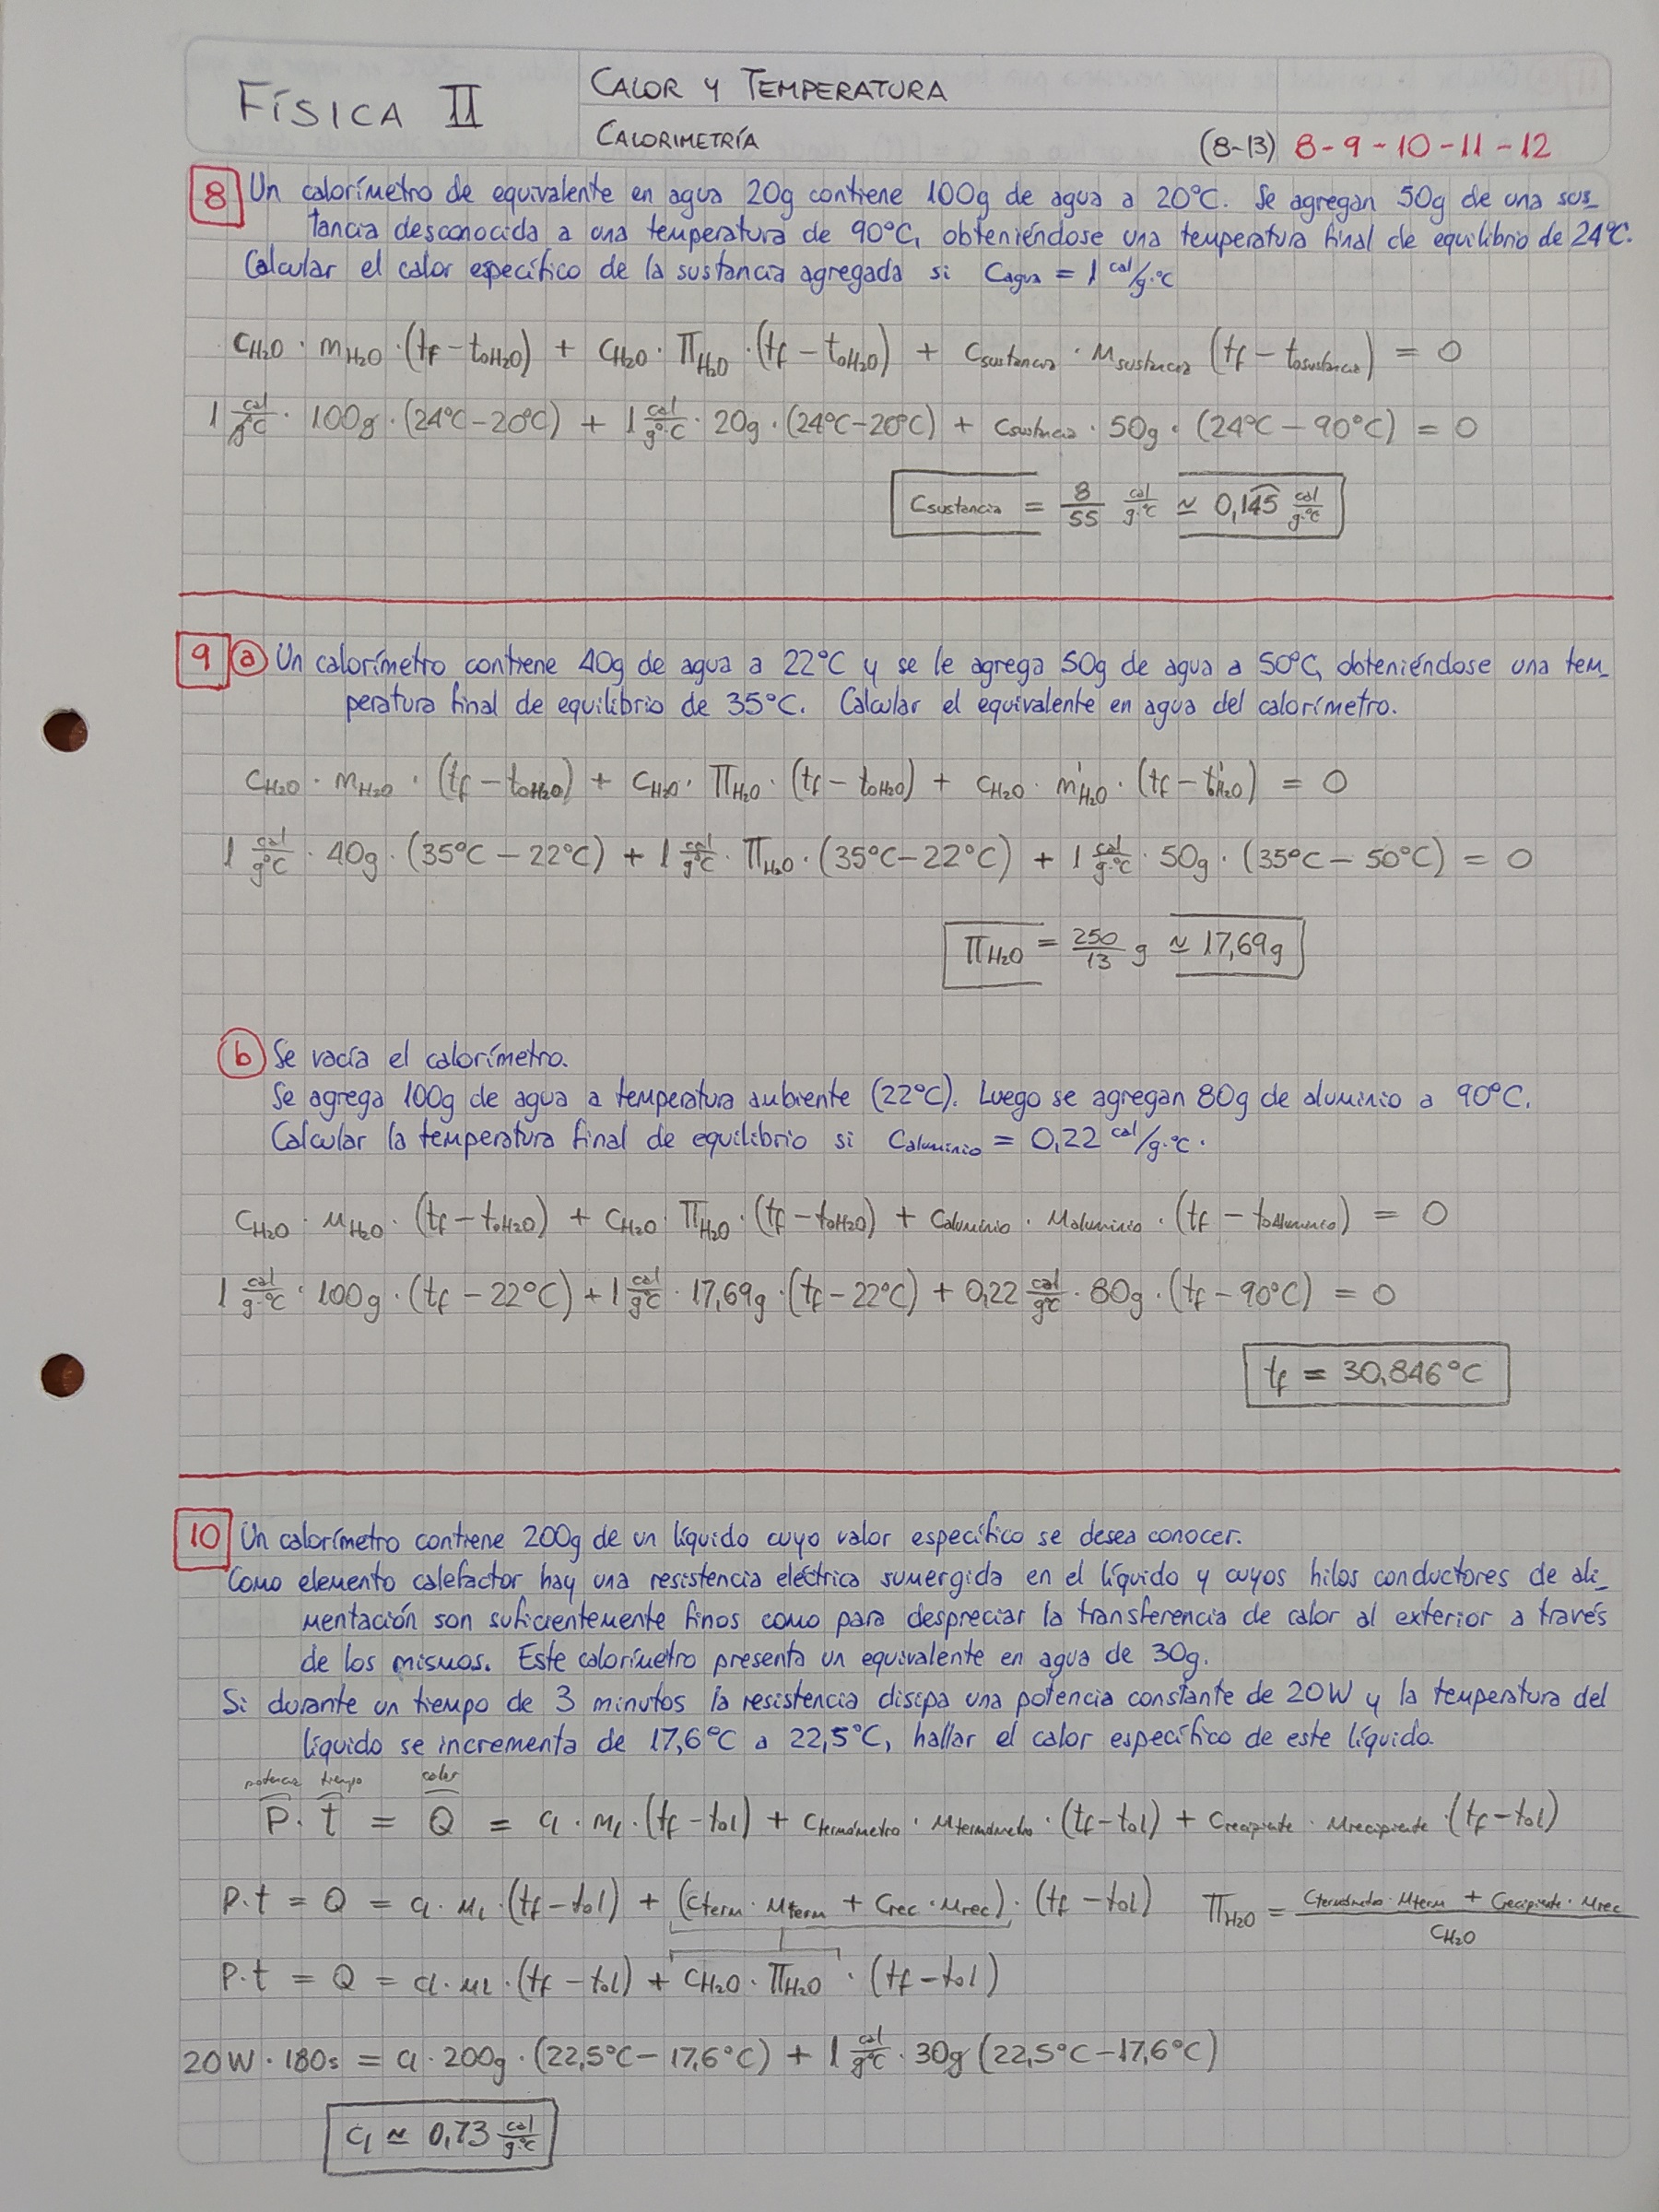 FÍSICA II
CALOR Y TEMPERATURA
CALORIMETRÍA
(8-13) 8-9-10-11-12
8 Un calorímetro de equivalente en agua 20g contiene 100g de agua a 20°C. Se agregan 50g de una sus_
tancia desconocida a una temperatura de 90°C, obteniéndose una temperatura final de equilibrio de 24°C.
Calcular el calor específico de la sustancia agregada si Cagua = 1 cal/g.°C
CH2O · mH2O · (tf - toH2O) + CH2O · ΠH2O · (tf - toH2O) + Csustancia · Msustancia (tf - tosustancia) = 0
1 cal/g°C · 100g · (24°C - 20°C) + 1 cal/g°·C · 20g · (24°C - 20°C) + Csustancia · 50g · (24°C - 90°C) = 0
Csustancia = 8/55 cal/g·°C ≃ 0,145 cal/g·°C
9 a Un calorímetro contiene 40g de agua a 22°C y se le agrega 50g de agua a 50°C, obteniéndose una tem_
peratura final de equilibrio de 35°C. Calcular el equivalente en agua del calorímetro.
CH2O · mH2O · (tf - toH2O) + CH2O · ΠH2O · (tf - toH2O) + CH2O · m'H2O · (tf - t'oH2O) = 0
1 cal/g°C · 40g · (35°C - 22°C) + 1 cal/g·°C · ΠH2O · (35°C - 22°C) + 1 cal/g·°C · 50g · (35°C - 50°C) = 0
ΠH2O = 250/13 g ≃ 17,69g
b Se vacía el calorímetro.
Se agrega 100g de agua a temperatura ambiente (22°C). Luego se agregan 80g de aluminio a 90°C.
Calcular la temperatura final de equilibrio si Caluminio = 0,22 cal/g·°C.
CH2O · MH2O · (tf - toH2O) + CH2O · ΠH2O · (tf - toH2O) + Caluminio · Maluminio · (tf - toAluminio) = 0
1 cal/g·°C · 100g · (tf - 22°C) + 1 cal/g°C · 17,69g · (tf - 22°C) + 0,22 cal/g°C · 80g · (tf - 90°C) = 0
tf = 30,846°C
10 Un calorímetro contiene 200g de un líquido cuyo valor específico se desea conocer.
Como elemento calefactor hay una resistencia eléctrica sumergida en el líquido y cuyos hilos conductores de ali_
mentación son suficientemente finos como para despreciar la transferencia de calor al exterior a través
de los mismos. Este calorímetro presenta un equivalente en agua de 30g.
Si durante un tiempo de 3 minutos la resistencia disipa una potencia constante de 20W y la temperatura del
líquido se incrementa de 17,6°C a 22,5°C, hallar el calor específico de este líquido.
potencia tiempo calor
P · t = Q = cl · ml · (tf - tol) + Ctermómetro · Mtermómetro · (tf - tol) + Crecipiente · Mrecipiente · (tf - tol)
P·t = Q = cl · Ml · (tf - tol) + (Cterm · Mterm + Crec · Mrec) · (tf - tol) ΠH2O = Ctermómetro · Mterm + Crecipiente · Mrec / CH2O
P·t = Q = cl · Ml · (tf - tol) + CH2O · ΠH2O · (tf - tol)
20W · 180s = cl · 200g · (22,5°C - 17,6°C) + 1 cal/g°C · 30g (22,5°C - 17,6°C)
cl ≃ 0,73 cal/g·°C